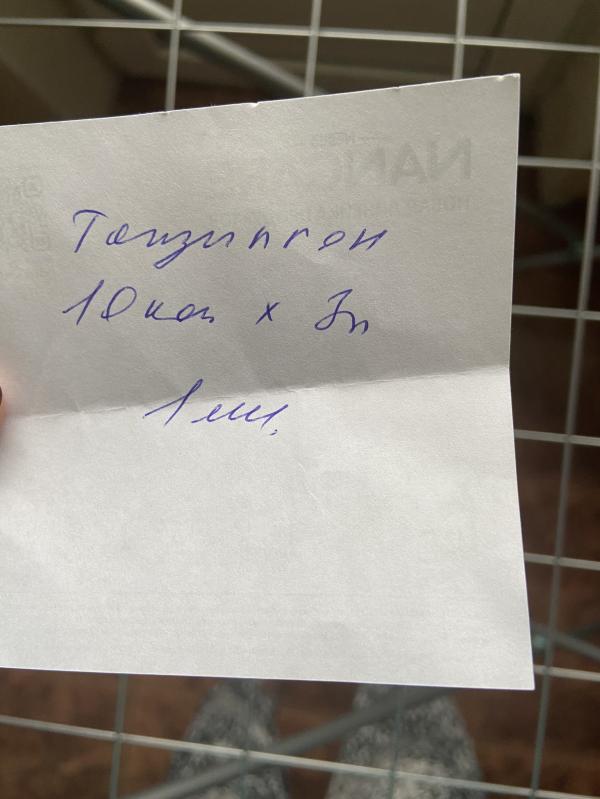 Тонзилгон
10 кап x 3р
1